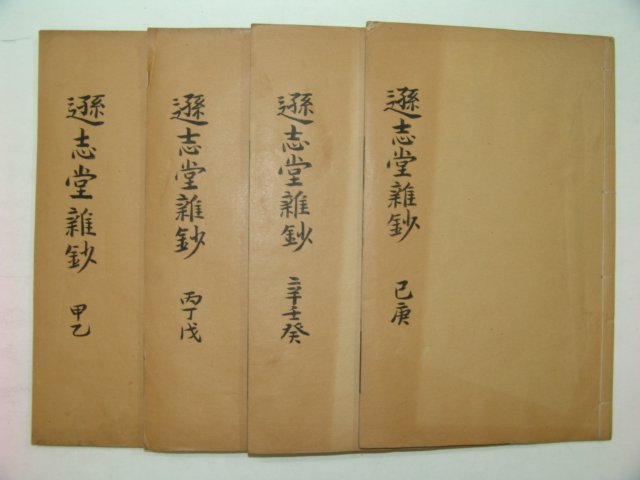 遜志堂雜鈔 甲乙
遜志堂雜鈔 丙丁戊
遜志堂雜鈔 辛壬癸
遜志堂雜鈔 己庚